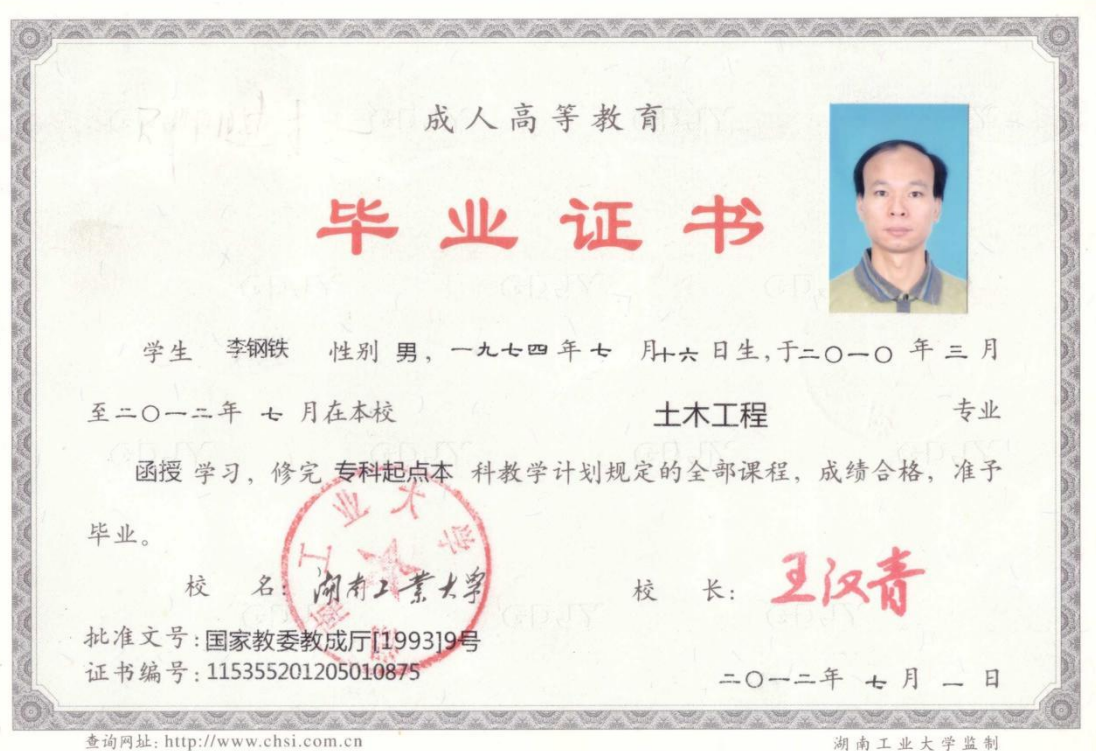 成人高等教育
毕业证书
学生 李钢铁 性别 男，一九七四年七 月十六日生，于二〇一〇年三月
至二〇一二年 七 月在本校 土木工程 专业
函授 学习，修完 专科起点本 科教学计划规定的全部课程，成绩合格，准予
毕业。
校 名：湖南工业大学 校 长：王汉青
批准文号：国家教委教成厅[1993]9号
证书编号：115355201205010875
二〇一二年 七 月 一 日
查询网址：http://www.chsi.com.cn 湖南工业大学监制